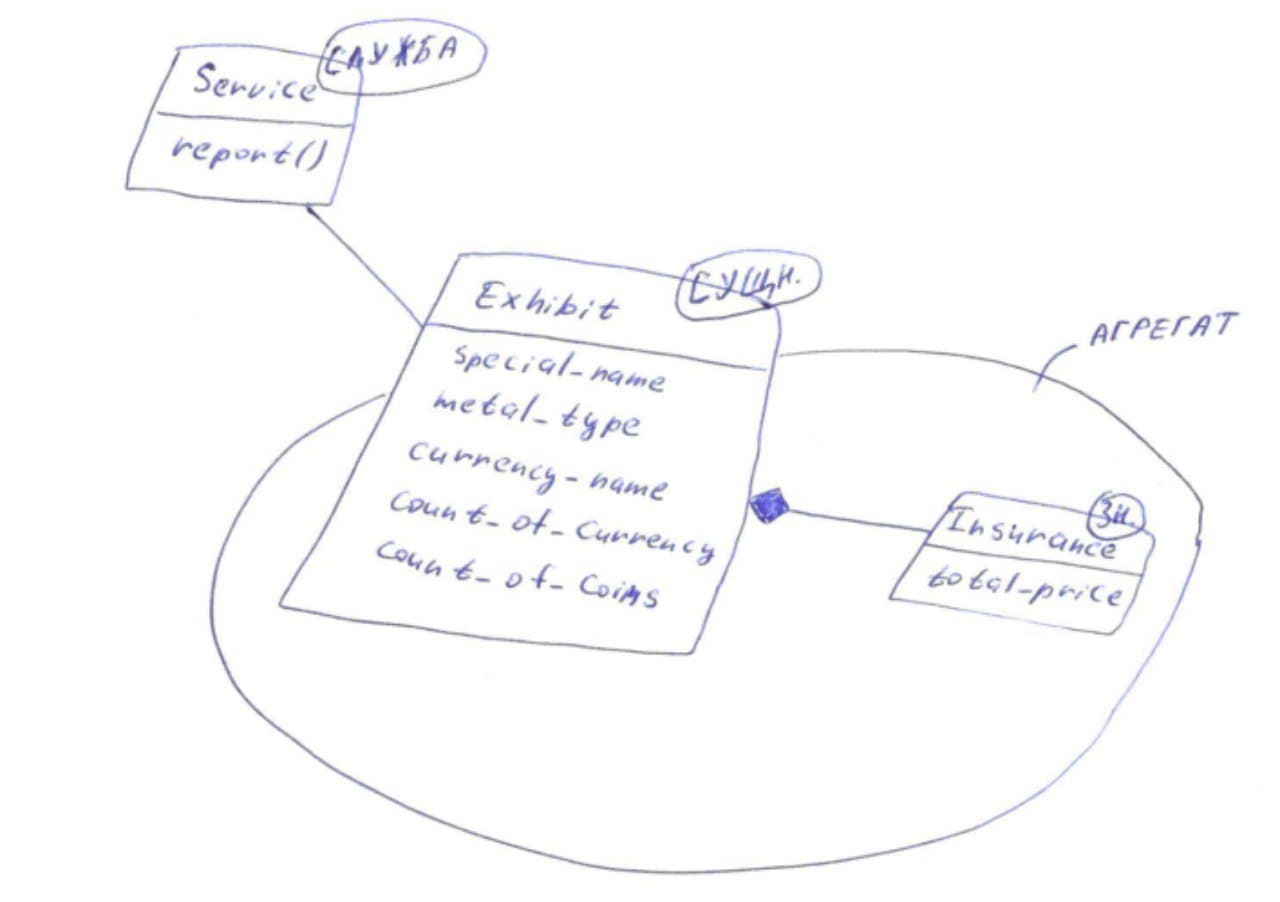 СЛУЖБА
Service
report()
СУЩН.
Exhibit
special_name
metal_type
currency_name
count_of_currency
count_of_coins
АГРЕГАТ
Зн.
Insurance
total_price